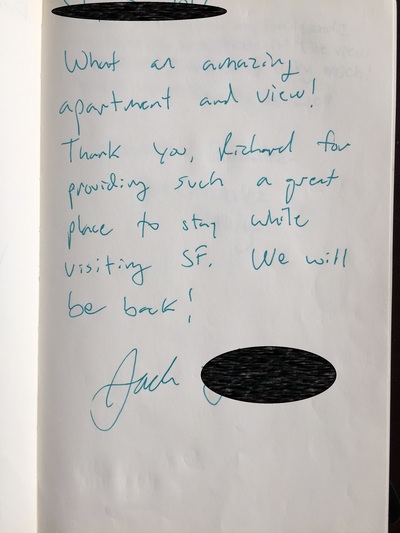 What an amazing
apartment and view!
Thank you, Richard for
providing such a great
place to stay while
visiting SF. We will
be back!
Jack